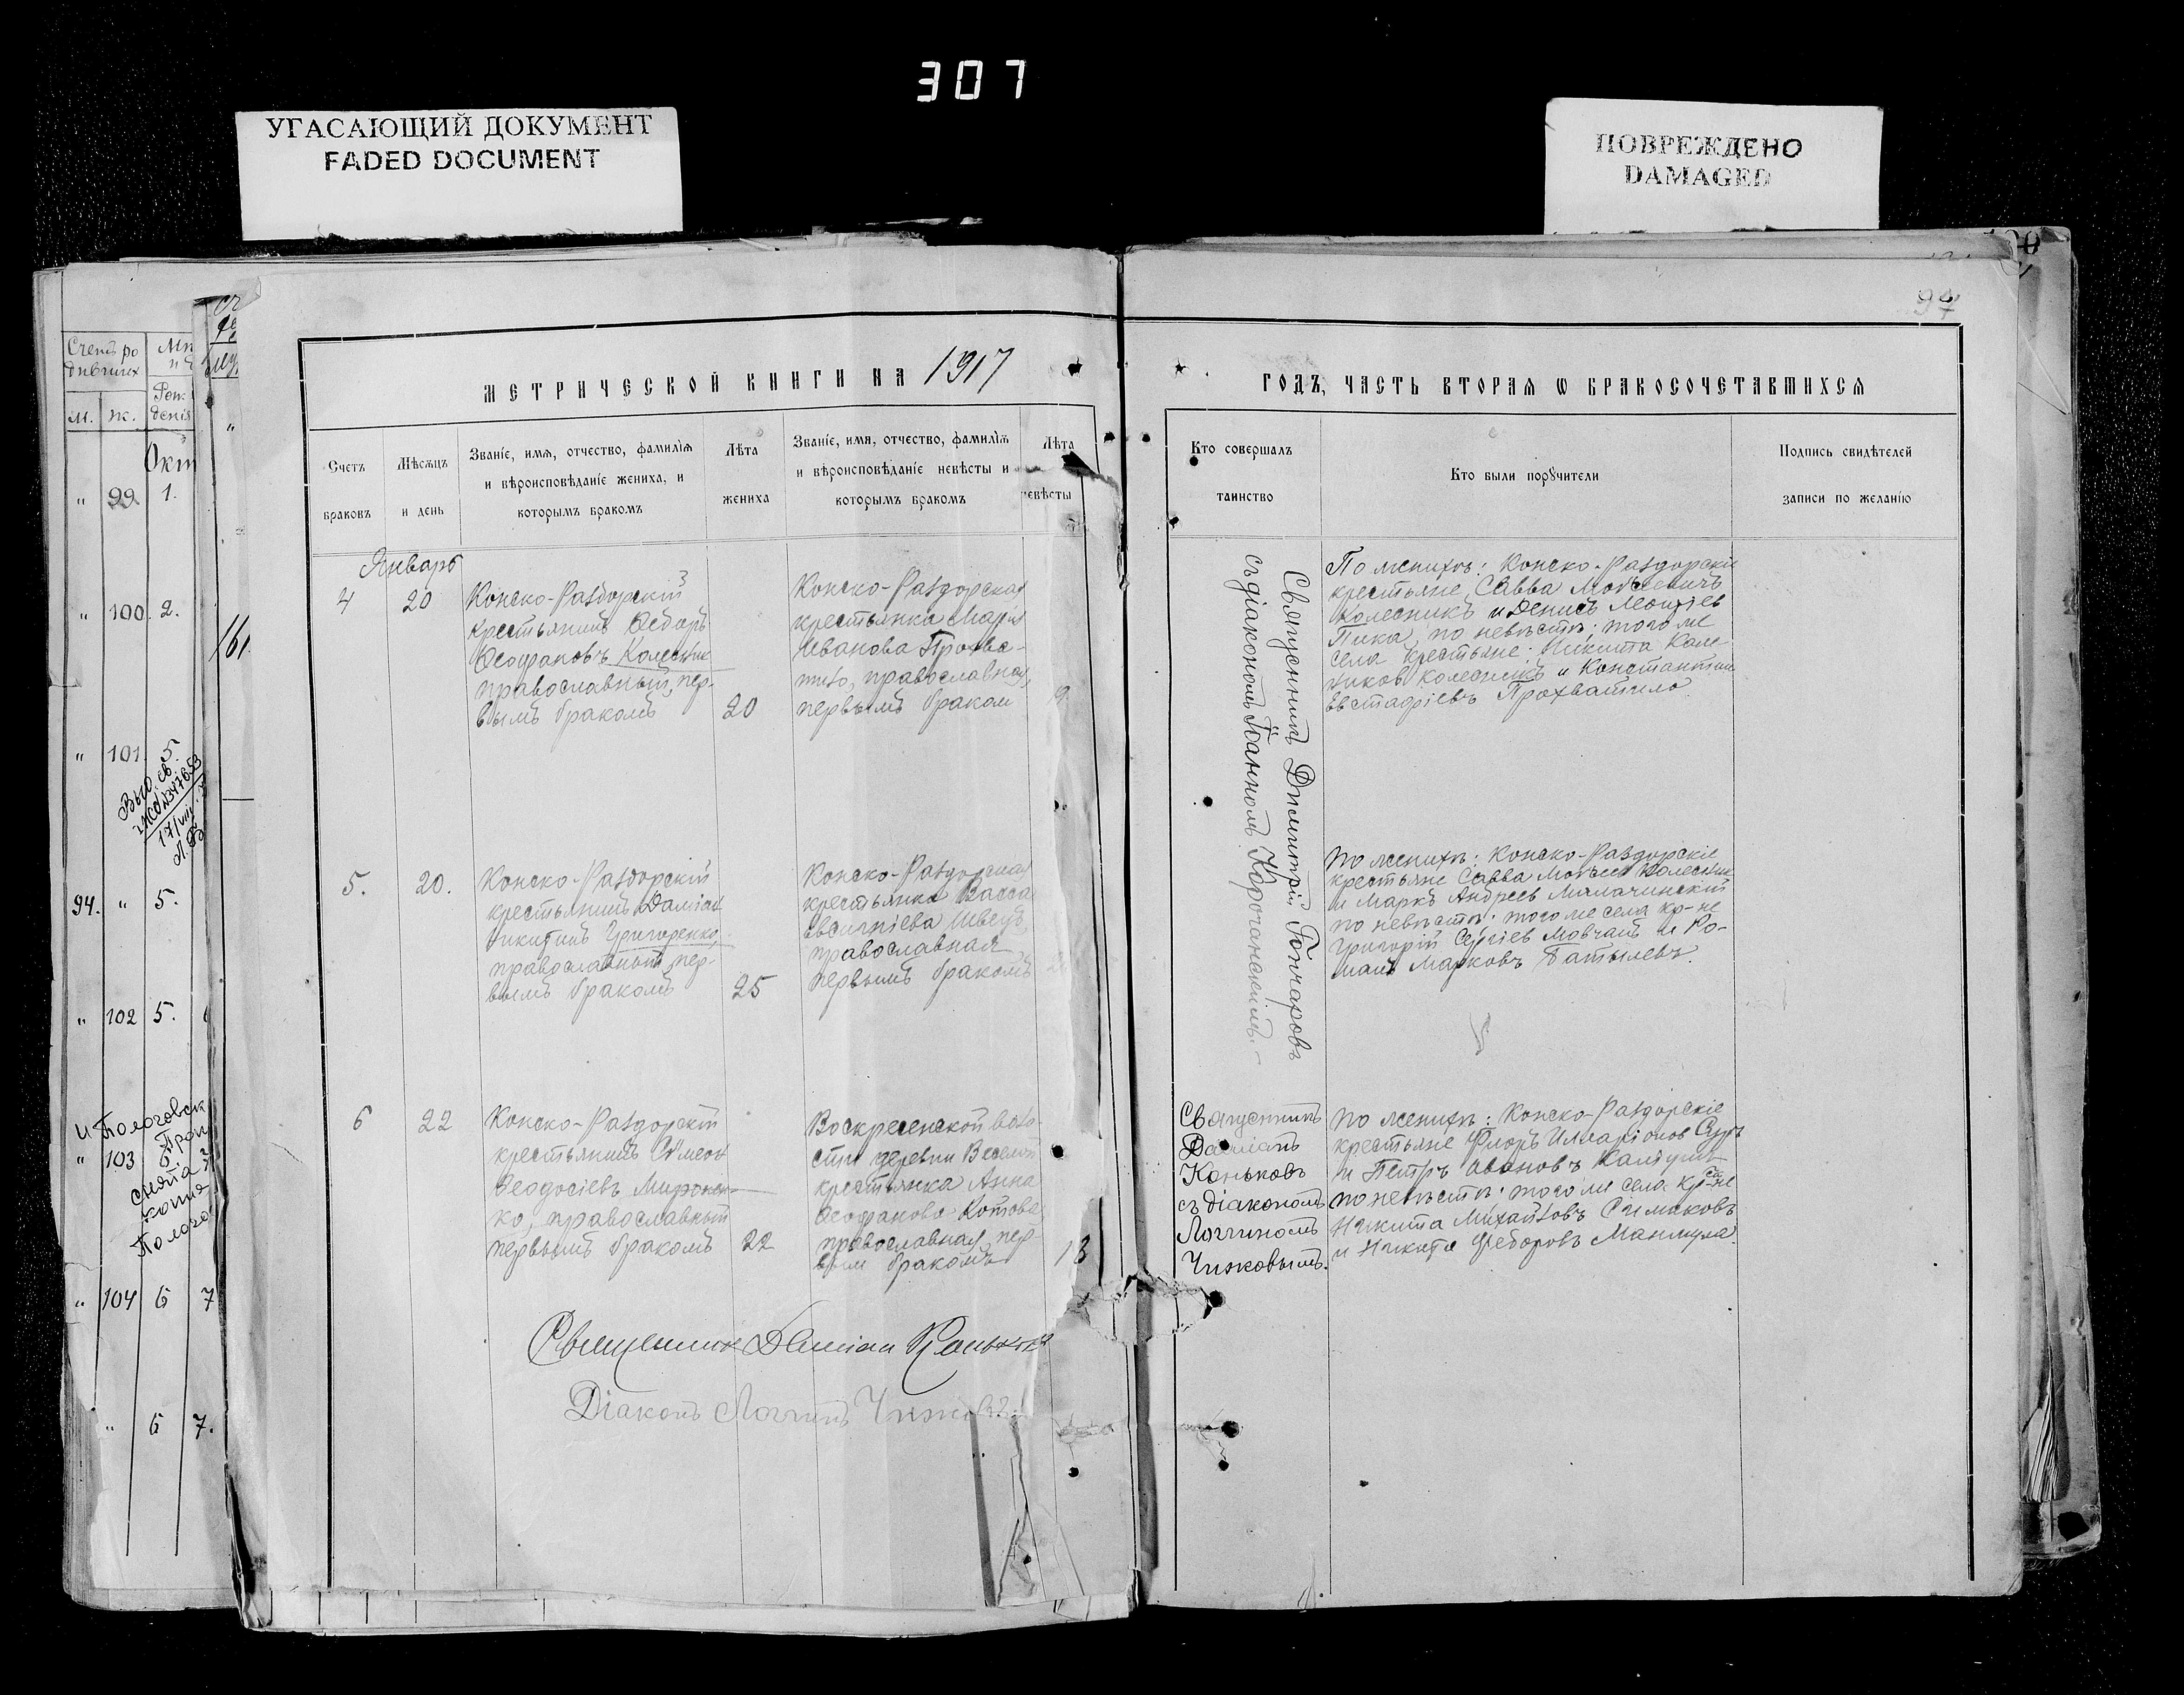 307
УГАСАЮЩИЙ ДОКУМЕНТ
FADED DOCUMENT
ПОВРЕЖДЕНО
DAMAGED
94
МЕТРИЧЕСКОЙ КНИГИ НА 1917
ГОДЪ, ЧАСТЬ ВТОРАЯ Ѡ БРАКОСОЧЕТАВШИХСЯ
Счетъ браковъ
Мѣсяцъ и день
Званіе, имя, отчество, фамилія
и вѣроисповѣданіе жениха, и
которымъ бракомъ
Лѣта
жениха
Званіе, имя, отчество, фамилія
и вѣроисповѣданіе невѣсты и
которымъ бракомъ
Лѣта
невѣсты
Кто совершалъ
таинство
Кто были порꙋчители
Подпись свидѣтелей
записи по желанію
Январь
4
20
Конско-Раздорскій
крестьянинъ Ѳедоръ
Ѳеофановъ Колесник
православный, пер-
вымъ бракомъ
20
Конско-Раздорская
крестьянка Марія
Иванова
православная,
первымъ браком
Священникъ Димитрій Гончаровъ
съ діакономъ Іоанномъ Корочанскимъ.
По женихѣ: Конско-Раздорскіе
крестьяне, Савва Моѵсеевичъ
Колесникъ и Денисъ Леонтіев
Пика, по невѣстѣ: того же
села крестьяне: Никита
Колесникъ и Константин
Евстафіевъ Прохватило.
5.
20.
Конско-Раздорскій
крестьянинъ Даміан
Никитинъ Григоренко,
православный, пер-
вымъ бракомъ
25
Конско-Раздорская
крестьянка Васса
Евсигніева Швецъ,
православная
первымъ бракомъ
По женихѣ: Конско-Раздорскіе
крестьяне Савва Моѵсеев Колесник
и Маркъ Андреев
по невѣстѣ: того же села кр-не
Григорій Сергіев Мовчанъ и Ро-
манъ Марковъ Батылевъ.
6
22
Конско-Раздорскій
крестьянинъ Сѵмеон
Ѳеодосіевъ Миронен-
ко, православный
первымъ бракомъ
22
Воскресенской воло-
сти деревни Веселой
крестьянка Анна
Ѳеофанова Котова,
православная, пер-
вым бракомъ
18
Священникъ
Даміанъ
Коньковъ
съ діакономъ
Логгиномъ
Чижовымъ.
По женихѣ: Конско-Раздорскіе
крестьяне Флоръ Илларіонов
и Петръ Ивановъ
по невѣстѣ: того же села кр-не
Никита Михайловъ Симаковъ
и Никита Ѳедоровъ
Священник Даміан Коньков
Діаконъ Логгинъ Чижовъ
Счетъ ро
м.
ж.
Окт
" 99. 1.
" 100. 2.
" 101. 5.
94. " 5.
" 102 5.
" 103
" 104 6 7
" 6 7.
161